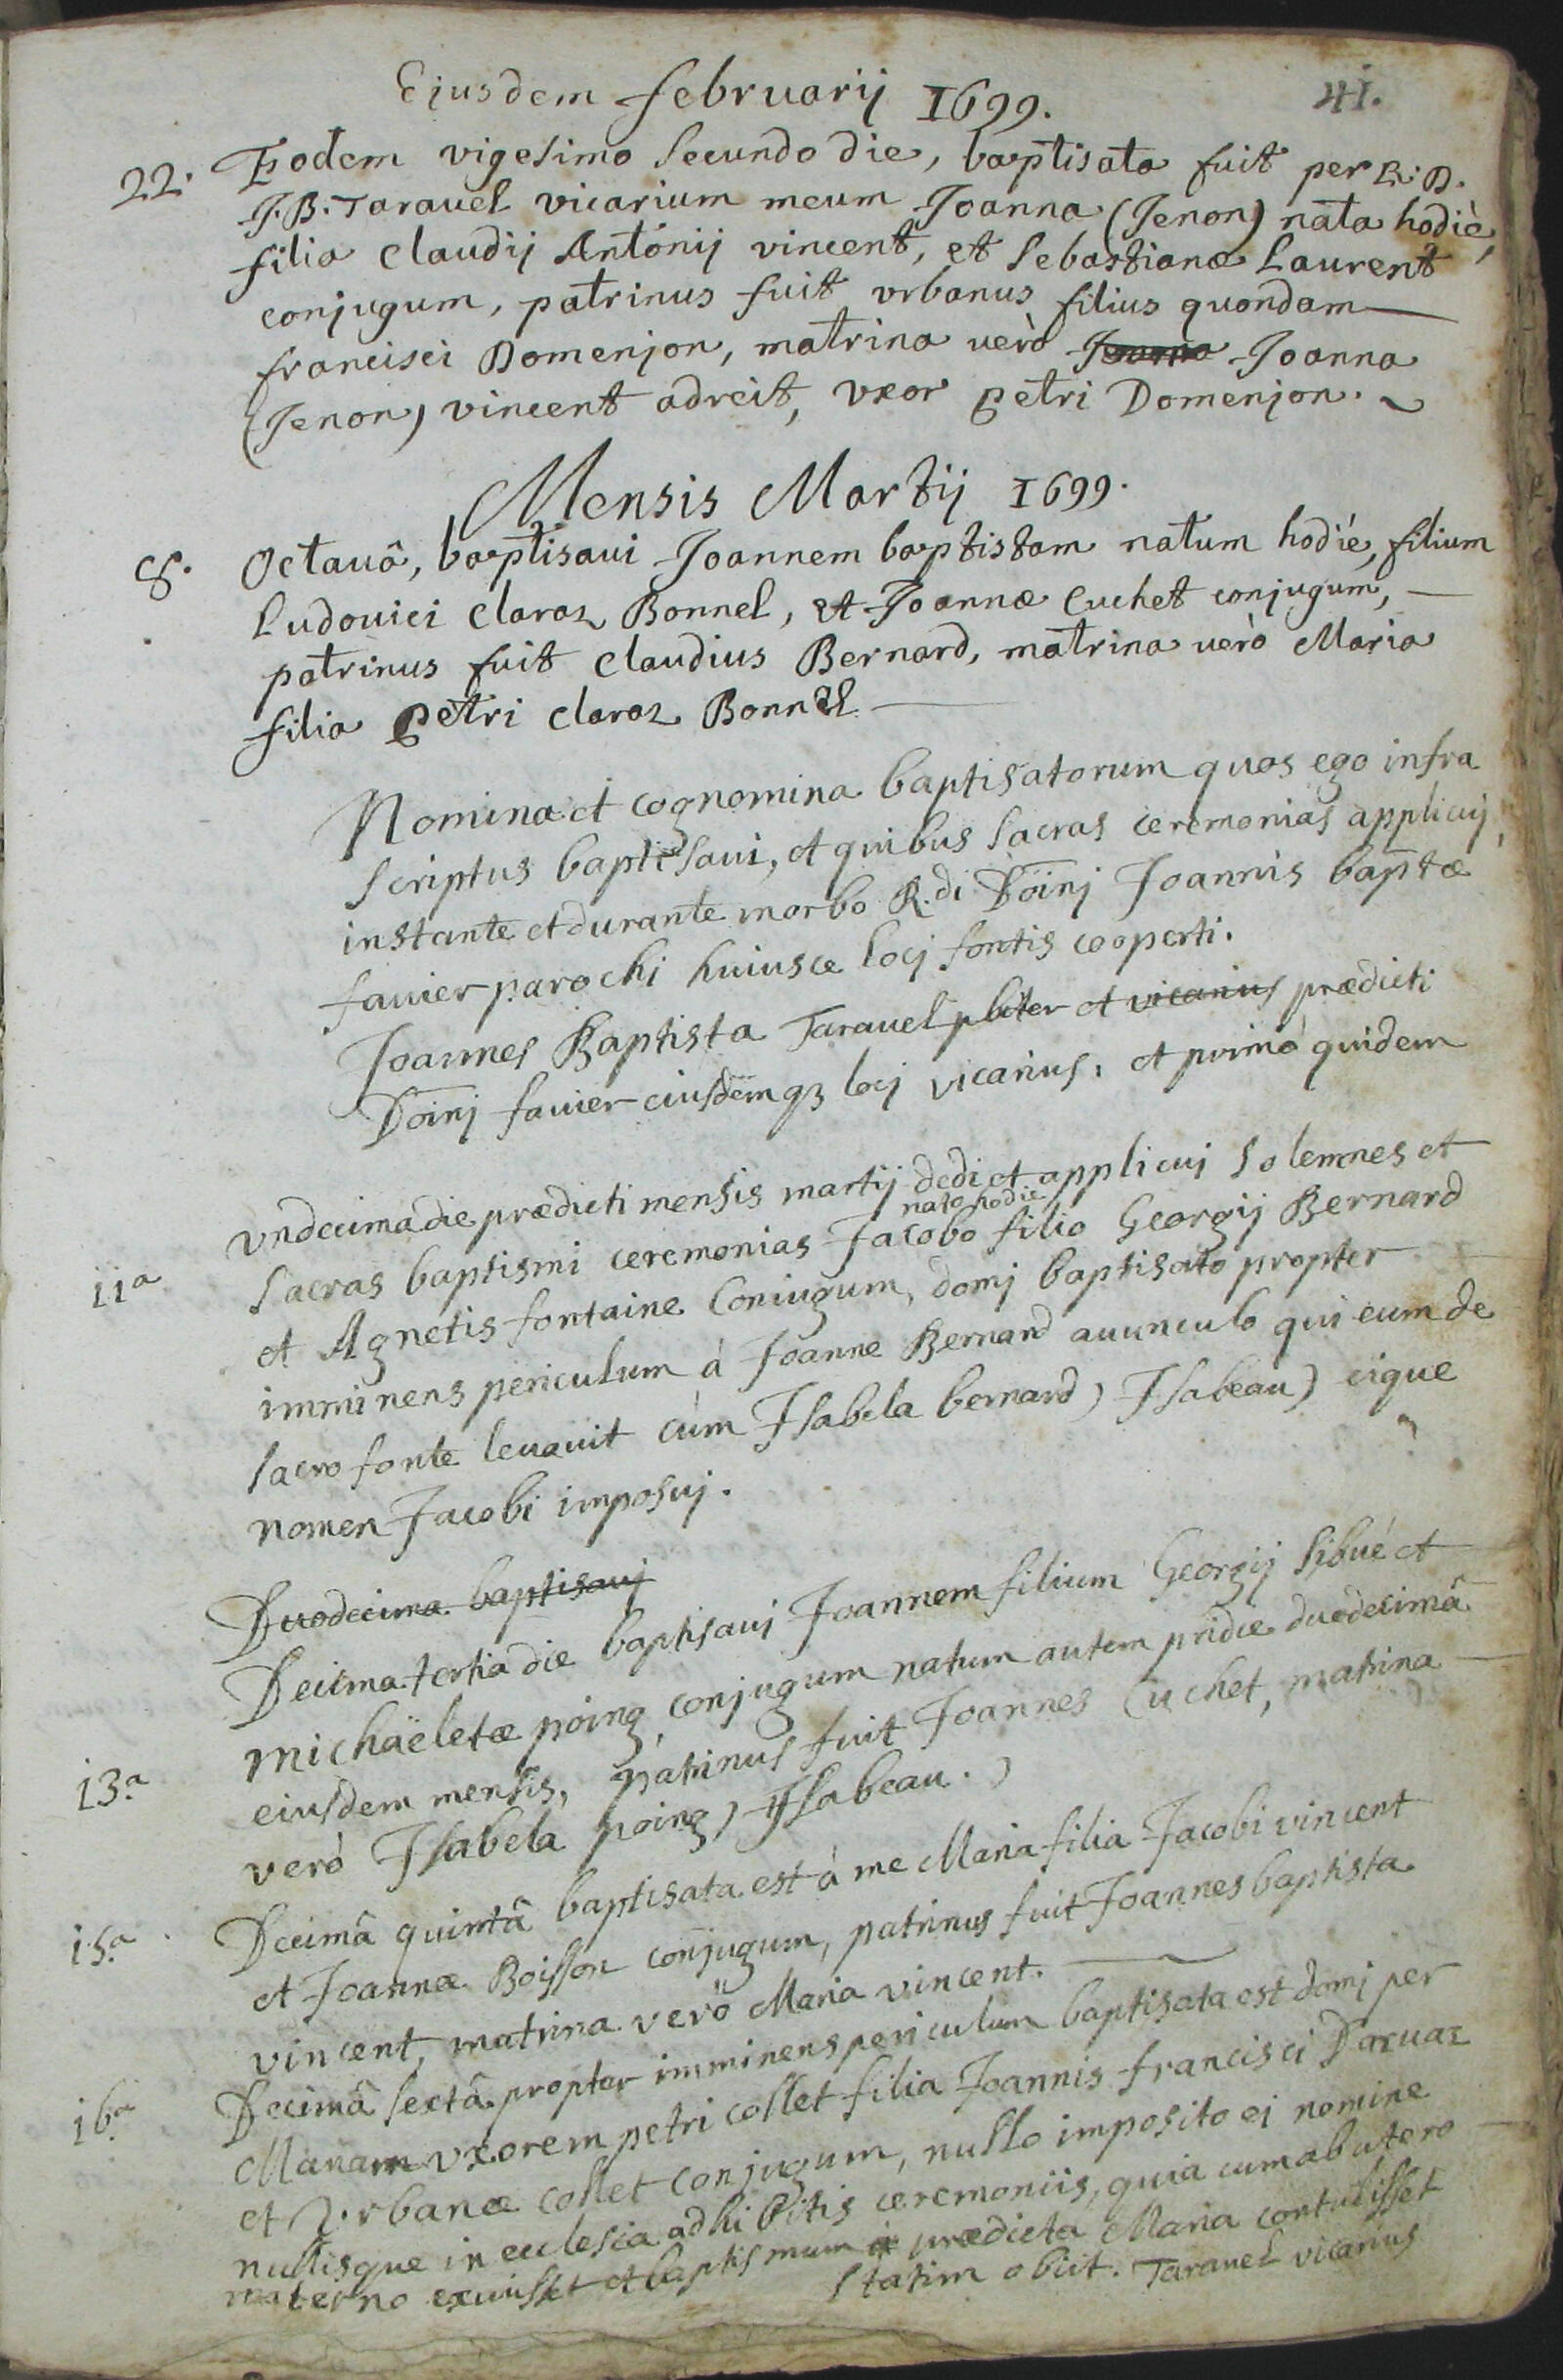 Ejusdem februarij 1699. 41.
22. Eodem vigesimo secundo die, baptisata fuit per R. D.
J. B. Tarauel vicarium meum Joanna (Jenon) nata hodiè,
filia claudij Antonij vincent, et sebastianæ Laurent
conjugum, patrinus fuit vrbanus filius quondam
francisci Domenjon, matrina uerò Joanna
(Jenon) vincent adreit, vxor petri Domenjon.
Mensis Martij 1699.
8. Octauâ, baptisaui Joannem baptistam natum hodiè, filium
Ludouici claraz Bonnel, et Joannæ Cuchet conjugum,
patrinus fuit claudius Bernard, matrina uerò Maria
filia petri claraz Bonnel
Nomina et cognomina baptisatorum quos ego infra
scriptus baptisaui, et quibus sacras ceremonias applicuj,
instante et durante morbo R.di Dōinj Joannis bap̄tæ
fauier parochi huiusce locj fontis cooperti.
Joannes Baptista Tarauel pbter et vicarius prædicti
Dōinj fauier eiusdemqz locj vicarius, et primò quidem
11a vndecima die prædicti mensis martij dedi et applicuj solemnes et
nato hodie
sacras baptismi ceremonias Jacobo filio Georgij Bernard
et Agnetis fontaine Coniugum, domj baptisato propter
imminens periculum à Joanne Bernard auunculo qui eum de
sacro fonte leuauit cùm Isabela bernard) Isabeau) eique
nomen Jacobi imposuj.
Duodecima baptisauj
Decima tertia die baptisauj Joannem filium Georgij sibué et
13.a michaëletæ poing conjugum natum autem pridie duodecimâ
eiusdem mensis, patrinus fuit Joannes Cuchet, matrina
verò Isabela poing) Isabeau.)
15.a Decimâ quintâ baptisata est à me Maria filia Jacobi vincent
et Joannæ Boisson conjugum, patrinus fuit Joannes baptista
vincent, matrina verò Maria vincent.
16.a Decimâ sextâ propter imminens periculum baptisata est domj per
Mariam vxorem petri collet filia Joannis francisci Daruaz
et Vrbanæ collet conjugum, nullo imposito ej nomine
nullisque in ecclesia adhibitis ceremoniis, quia cum ab utero
materno exiuisset et baptismum prædicta Maria contulisset
statim obiit. Tarauel vicarius